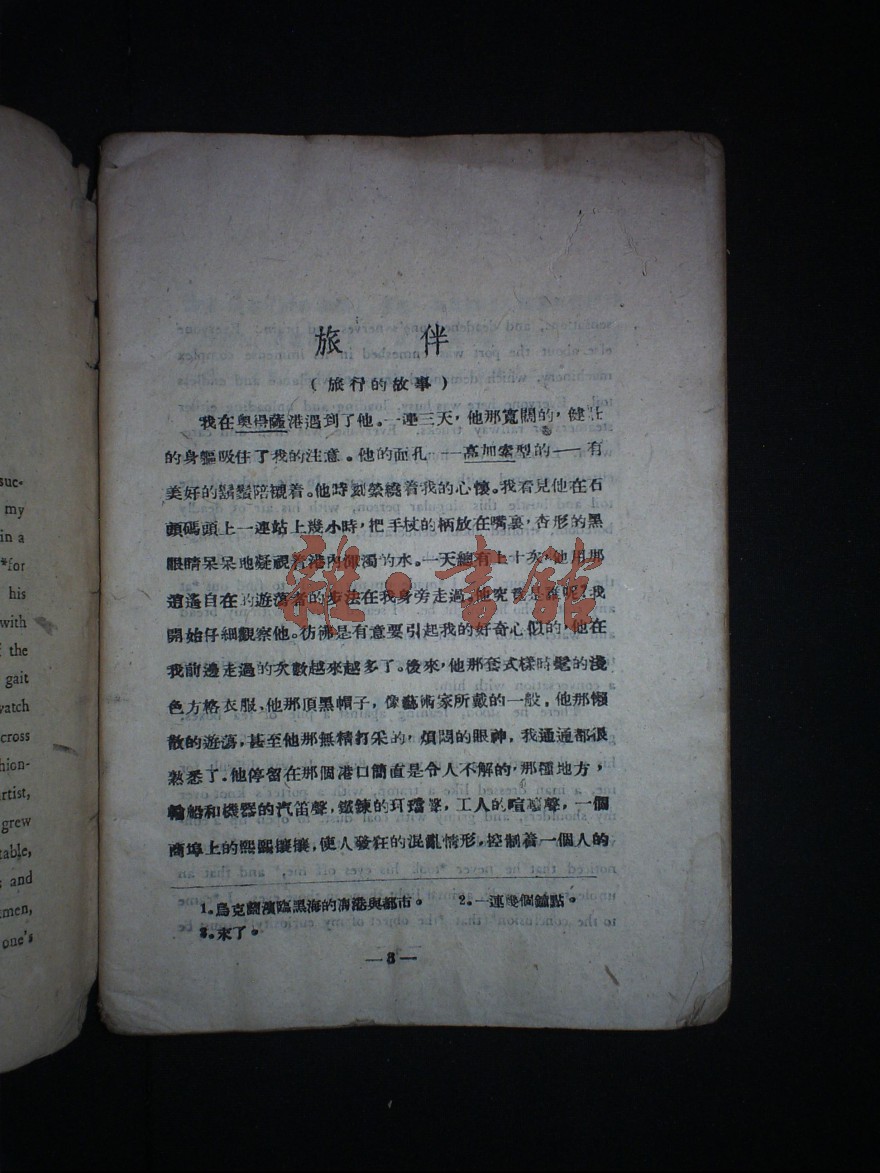 suc-
my
in a
*for
his
with
the
gait
watch
cross
hion-
rtist,
grew
table,
and
men,
one's
旅 伴
(旅行的故事)
我在奧得薩港遇到了他。一連三天,他那寬闊的,健壯
的身軀吸住了我的注意。他的面孔——高加索型的——有
美好的鬍鬚陪襯着。他時刻縈繞着我的心懷。我看見他在石
頭碼頭上一連站上幾小時,把手杖的柄放在嘴裏,杏形的黑
眼睛呆呆地凝視着港內渾濁的水。一天總有上十次,他用那
逍遙自在的遊蕩者的步法在我身旁走過。他究竟是誰呢?我
開始仔細觀察他。彷彿是有意要引起我的好奇心似的,他在
我前邊走過的次數越來越多了。後來,他那套式樣時髦的淺
色方格衣服、他那頂黑帽子,像藝術家所戴的一般,他那懶
散的遊蕩,甚至他那無精打采的,煩悶的眼神,我通通都很
熟悉了。他停留在那個港口簡直是令人不解的,那種地方,
輪船和機器的汽笛聲,鐵鍊的玎璫聲,工人的喧嚷聲,一個
商埠上的熙熙攘攘,使人發狂的混亂情形,控制着一個人的
1。烏克蘭濱臨黑海的海港與都市。 2。一連幾個鐘點。
3。來了。
—3—
雜·書館